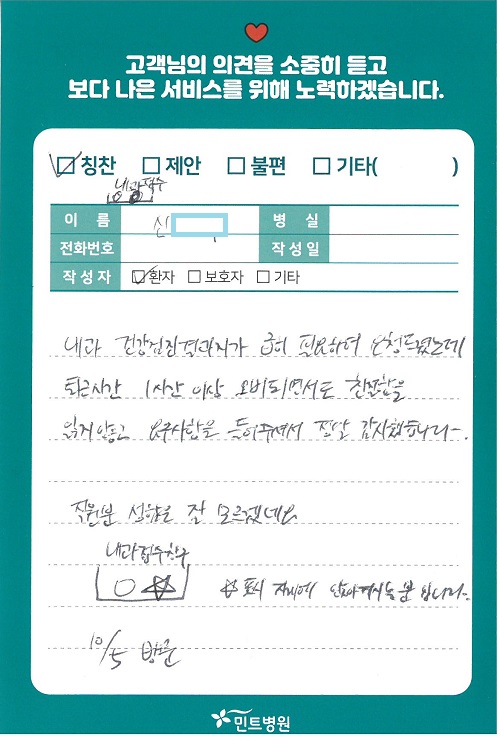 고객님의 의견을 소중히 듣고
보다 나은 서비스를 위해 노력하겠습니다.
칭찬 제안 불편 기타( )
내과접수
이 름 신 병 실
전화번호 작성일
작성자 환자 보호자 기타
내과 건강검진결과지가 급히 필요하여 요청드렸는데
퇴근시간 1시간 이상 오버되면서도 친절함을
잃지않고 요구사항을 들어주셔서 정말 감사했습니다~.
직원분 성함은 잘 모르겠네요
내과접수창구
표시 자리에 앉아계시는 분 입니다~
10/5 방문
민트병원